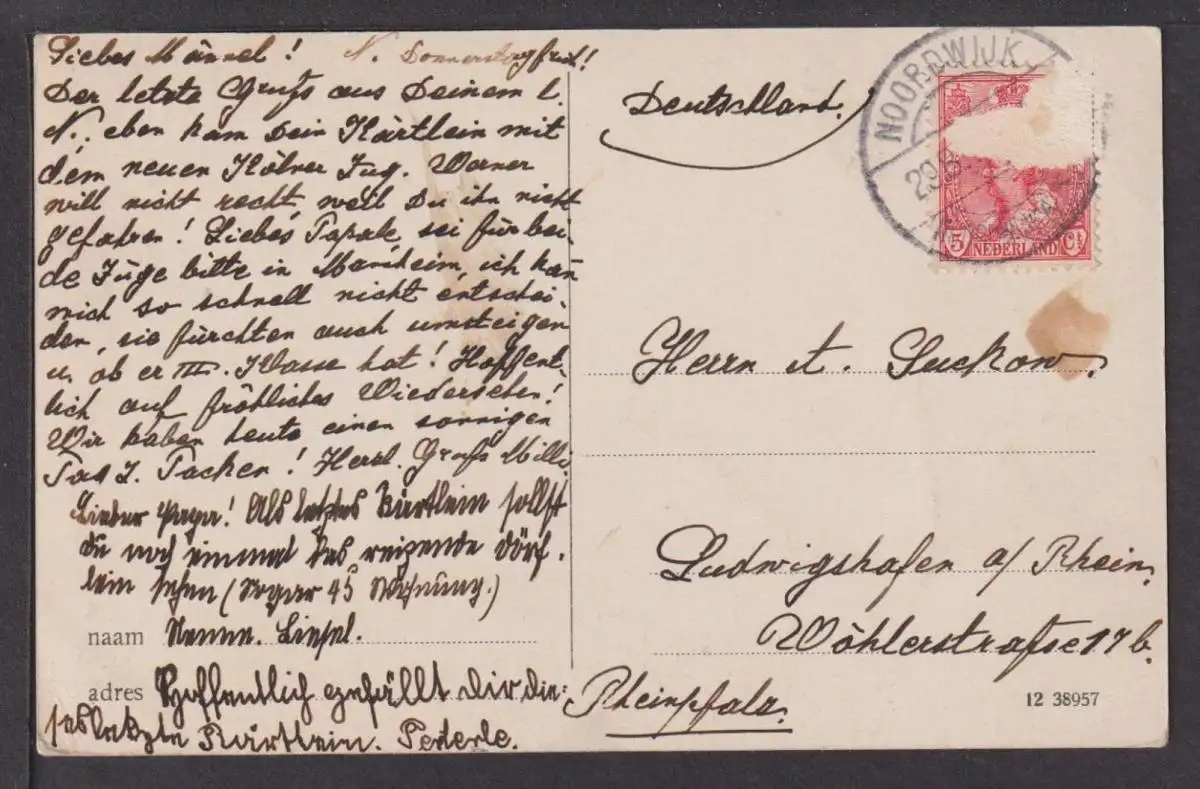 Liebes Männel! N. Donnerstagfrüh!
Der letzte Gruß aus Deinem l.
N., eben kam Dein Kärtlein mit
dem neuen Kölner Zug. Werner
will nicht recht, weil Du ihn nicht
gefahren! Liebes Papale, sei für bei-
de Züge bitte in Manheim, ich kan
mich so schnell nicht entschei-
den, sie fürchten auch umsteigen
u. ob er III. Klasse hat! Hoffent-
lich auf fröhliches Wiedersehen!
Wir haben heute einen sonnigen
Tag z. Packen! Herzl. Gruß Milli
Lieber Papa! Als letztes Kärtlein sollst
du noch einmal das reizende Dörf-
lein sehen (Sogar 45 Wohnung.)
naam Liesel.
adres Hoffentlich gefällt dir die-
ses letzte Kärtlein. Peterle.
Deutschland.
NOORDWIJK
29.8
5 NEDERLAND Ct
Herrn A. Suckow.
Ludwigshafen a/ Rhein.
Wöhlerstraße 17 b.
Rheinpfalz.
12 38957